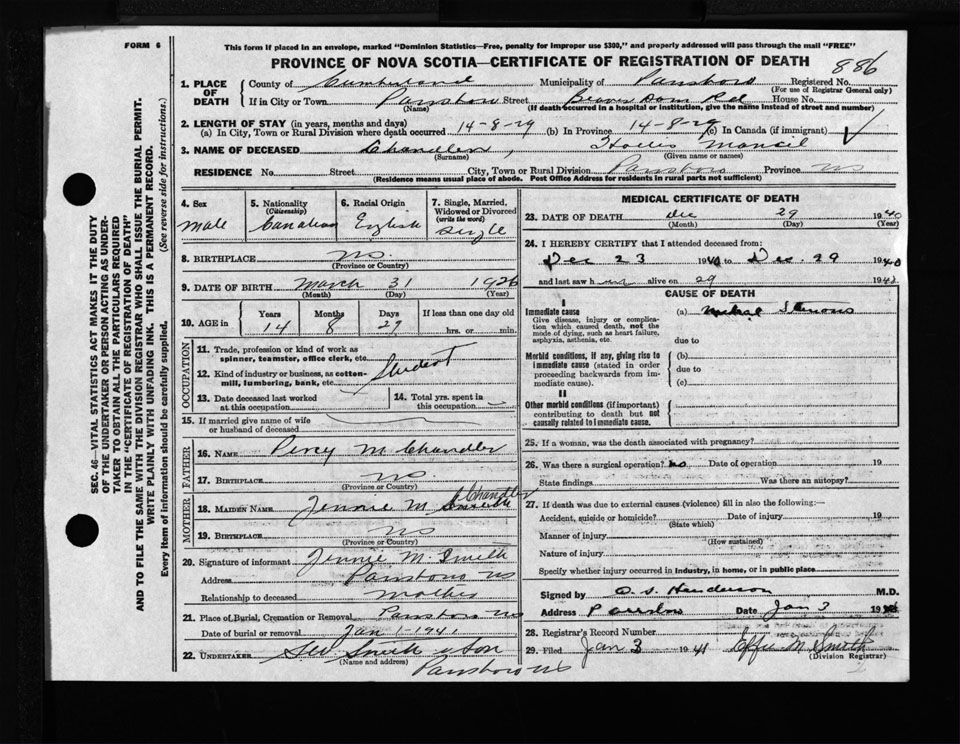 FORM 6
This form if placed in an envelope, marked "Dominion Statistics—Free, penalty for improper use $300," and properly addressed will pass through the mail "FREE"
PROVINCE OF NOVA SCOTIA—CERTIFICATE OF REGISTRATION OF DEATH 886
1. PLACE OF DEATH
County of Cumberland Municipality of Parrsboro Registered No.
(For use of Registrar General only)
If in City or Town Parrsboro Street Beaver Dam Rd House No.
(Name) (If death occurred in a hospital or institution, give the name instead of street and number)
2. LENGTH OF STAY (in years, months and days)
(a) In City, Town or Rural Division where death occurred 14-8-29 (b) In Province 14-8-29 (c) In Canada (if immigrant)
3. NAME OF DECEASED Chandler,
(Surname) (Given name or names)
RESIDENCE No. Street City, Town or Rural Division Parrsboro Province NS
(Residence means usual place of abode. Post Office Address for residents in rural parts not sufficient)
4. Sex
Male
5. Nationality
(Citizenship)
Canadian
6. Racial Origin
English
7. Single, Married, Widowed or Divorced
(write the word)
Single
8. BIRTHPLACE NS
(Province or Country)
9. DATE OF BIRTH March 31 1926
(Month) (Day) (Year)
10. AGE in
Years Months Days If less than one day old
14 8 29 hrs. or min.
OCCUPATION
11. Trade, profession or kind of work as spinner, teamster, office clerk, etc.
12. Kind of industry or business, as cotton-mill, lumbering, bank, etc.
Student
13. Date deceased last worked at this occupation
14. Total yrs. spent in this occupation
15. If married give name of wife or husband of deceased
FATHER
16. NAME Percy M. Chandler
17. BIRTHPLACE NS
(Province or Country)
MOTHER
Chandler
18. MAIDEN NAME Jennie M Smith
19. BIRTHPLACE NS
(Province or Country)
20. Signature of informant Jennie M. Smith
Address Parrsboro NS
Relationship to deceased Mother
21. Place of Burial, Cremation or Removal Parrsboro NS
Date of burial or removal Jan 1-1941
22. UNDERTAKER Smith & Son
(Name and address)
Parrsboro NS
MEDICAL CERTIFICATE OF DEATH
23. DATE OF DEATH Dec 29 1940
(Month) (Day) (Year)
24. I HEREBY CERTIFY that I attended deceased from:
Dec 23 1940 to Dec. 29 1940
and last saw h alive on 29 194
CAUSE OF DEATH
I
Immediate cause
Give disease, injury or complication which caused death, not the mode of dying, such as heart failure, asphyxia, asthenia, etc.
(a) Stenosis
due to
Morbid conditions, if any, giving rise to immediate cause (stated in order proceeding backwards from immediate cause).
(b)
due to
(c)
II
Other morbid conditions (if important) contributing to death but not causally related to immediate cause.
25. If a woman, was the death associated with pregnancy?
26. Was there a surgical operation? no Date of operation 19
State findings Was there an autopsy?
27. If death was due to external causes (violence) fill in also the following:—
Accident, suicide or homicide? Date of injury 19
(State which)
Manner of injury
(How sustained)
Nature of injury
Specify whether injury occurred in industry, in home, or in public place
Signed by O. S. Henderson M.D.
Address Parrsboro Date Jan 3 19
28. Registrar's Record Number
29. Filed Jan 3 1941 Effie M. Smith
(Division Registrar)
SEC. 46—VITAL STATISTICS ACT MAKES IT THE DUTY
OF THE UNDERTAKER OR PERSON ACTING AS UNDERTAKER
TO OBTAIN ALL THE PARTICULARS REQUIRED
IN THE "CERTIFICATE OF REGISTRATION OF DEATH"
AND TO FILE THE SAME WITH THE DIVISION REGISTRAR WHO SHALL ISSUE THE BURIAL PERMIT.
WRITE PLAINLY WITH UNFADING INK. THIS IS A PERMANENT RECORD.
Every item of information should be carefully supplied. (See reverse side for instructions.)